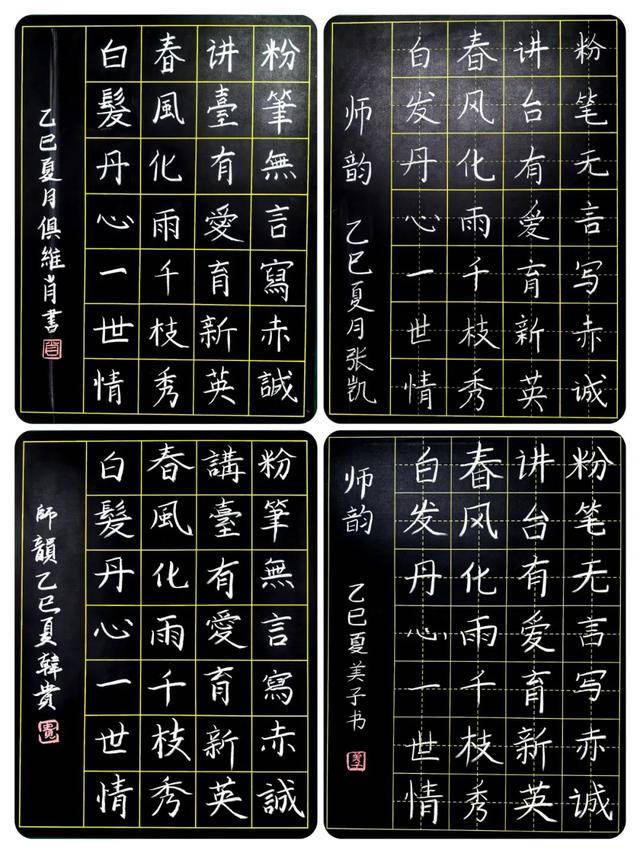 粉筆無言寫赤誠
讲臺有愛育新英
春風化雨千枝秀
白髮丹心一世情
乙巳夏月俱維肖書
粉笔无言写赤诚
讲台有爱育新英
春风化雨千枝秀
白发丹心一世情
师韵
乙巳夏月张凯
粉筆無言寫赤誠
講臺有愛育新英
春風化雨千枝秀
白髮丹心一世情
師韻乙巳夏韓貴
粉笔无言写赤诚
讲台有爱育新英
春风化雨千枝秀
白发丹心一世情
师韵
乙巳夏美子书